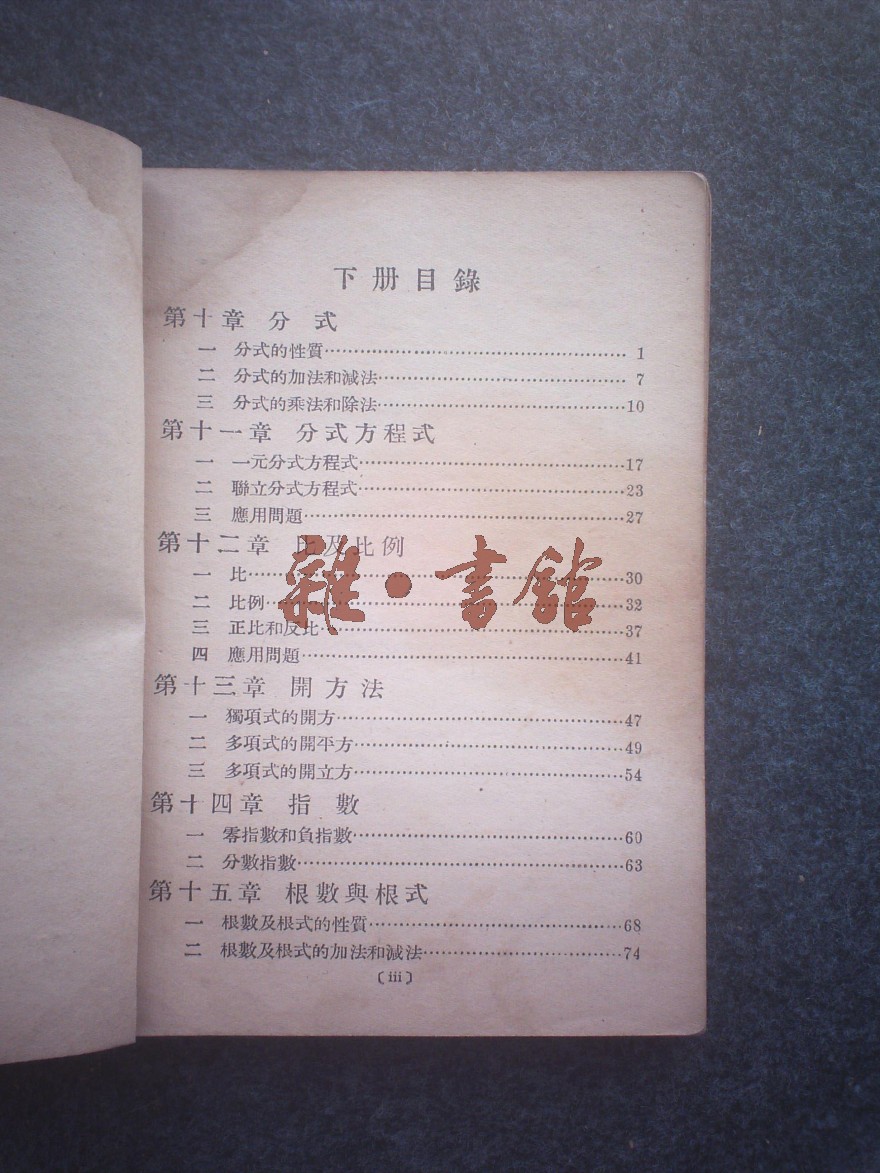 下册目錄
第十章 分式
一 分式的性質 1
二 分式的加法和減法 7
三 分式的乘法和除法 10
第十一章 分式方程式
一 一元分式方程式 17
二 聯立分式方程式 23
三 應用問題 27
第十二章 比及比例
一 比 30
二 比例 32
三 正比和反比 37
四 應用問題 41
雜·書館
第十三章 開方法
一 獨項式的開方 47
二 多項式的開平方 49
三 多項式的開立方 54
第十四章 指數
一 零指數和負指數 60
二 分數指數 63
第十五章 根數與根式
一 根數及根式的性質 68
二 根數及根式的加法和減法 74
〔iii〕